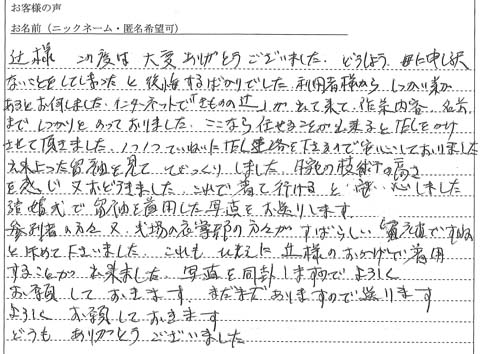 お客様の声
お名前(ニックネーム・匿名希望可)
辻様 この度は大変ありがとうございました。どうしよう 母に申し訳
ないことをしてしまったと後悔するばかりでした 利用者様から しつかい業が
あるとお伺しました。インターネットで「きものの辻」が出て来て 作業内容 名前
までしっかりとのっておりました。ここなら任せることが出来ると TELをかけ
させて頂きました 1つ1つていねいに TEL連絡を下さるので安心しておりました
出来上った留袖を見て びっくりしました 辻様の技術の高さ
を感じ 又おどろきました これで着て行けると 安心しました
結婚式で留袖を着用した写真をお送りします
参列者の方々 又、式場の衣裳部の方々が すばらしい「留袖ですね」
と ほめて下さいました これも ひとえに 辻様のおかげで着用
することが 出来ました 写真を同封しますので よろしく
お願いしておきます まだまだありますので送ります
よろしく お願しておきます
どうも ありがとうございました